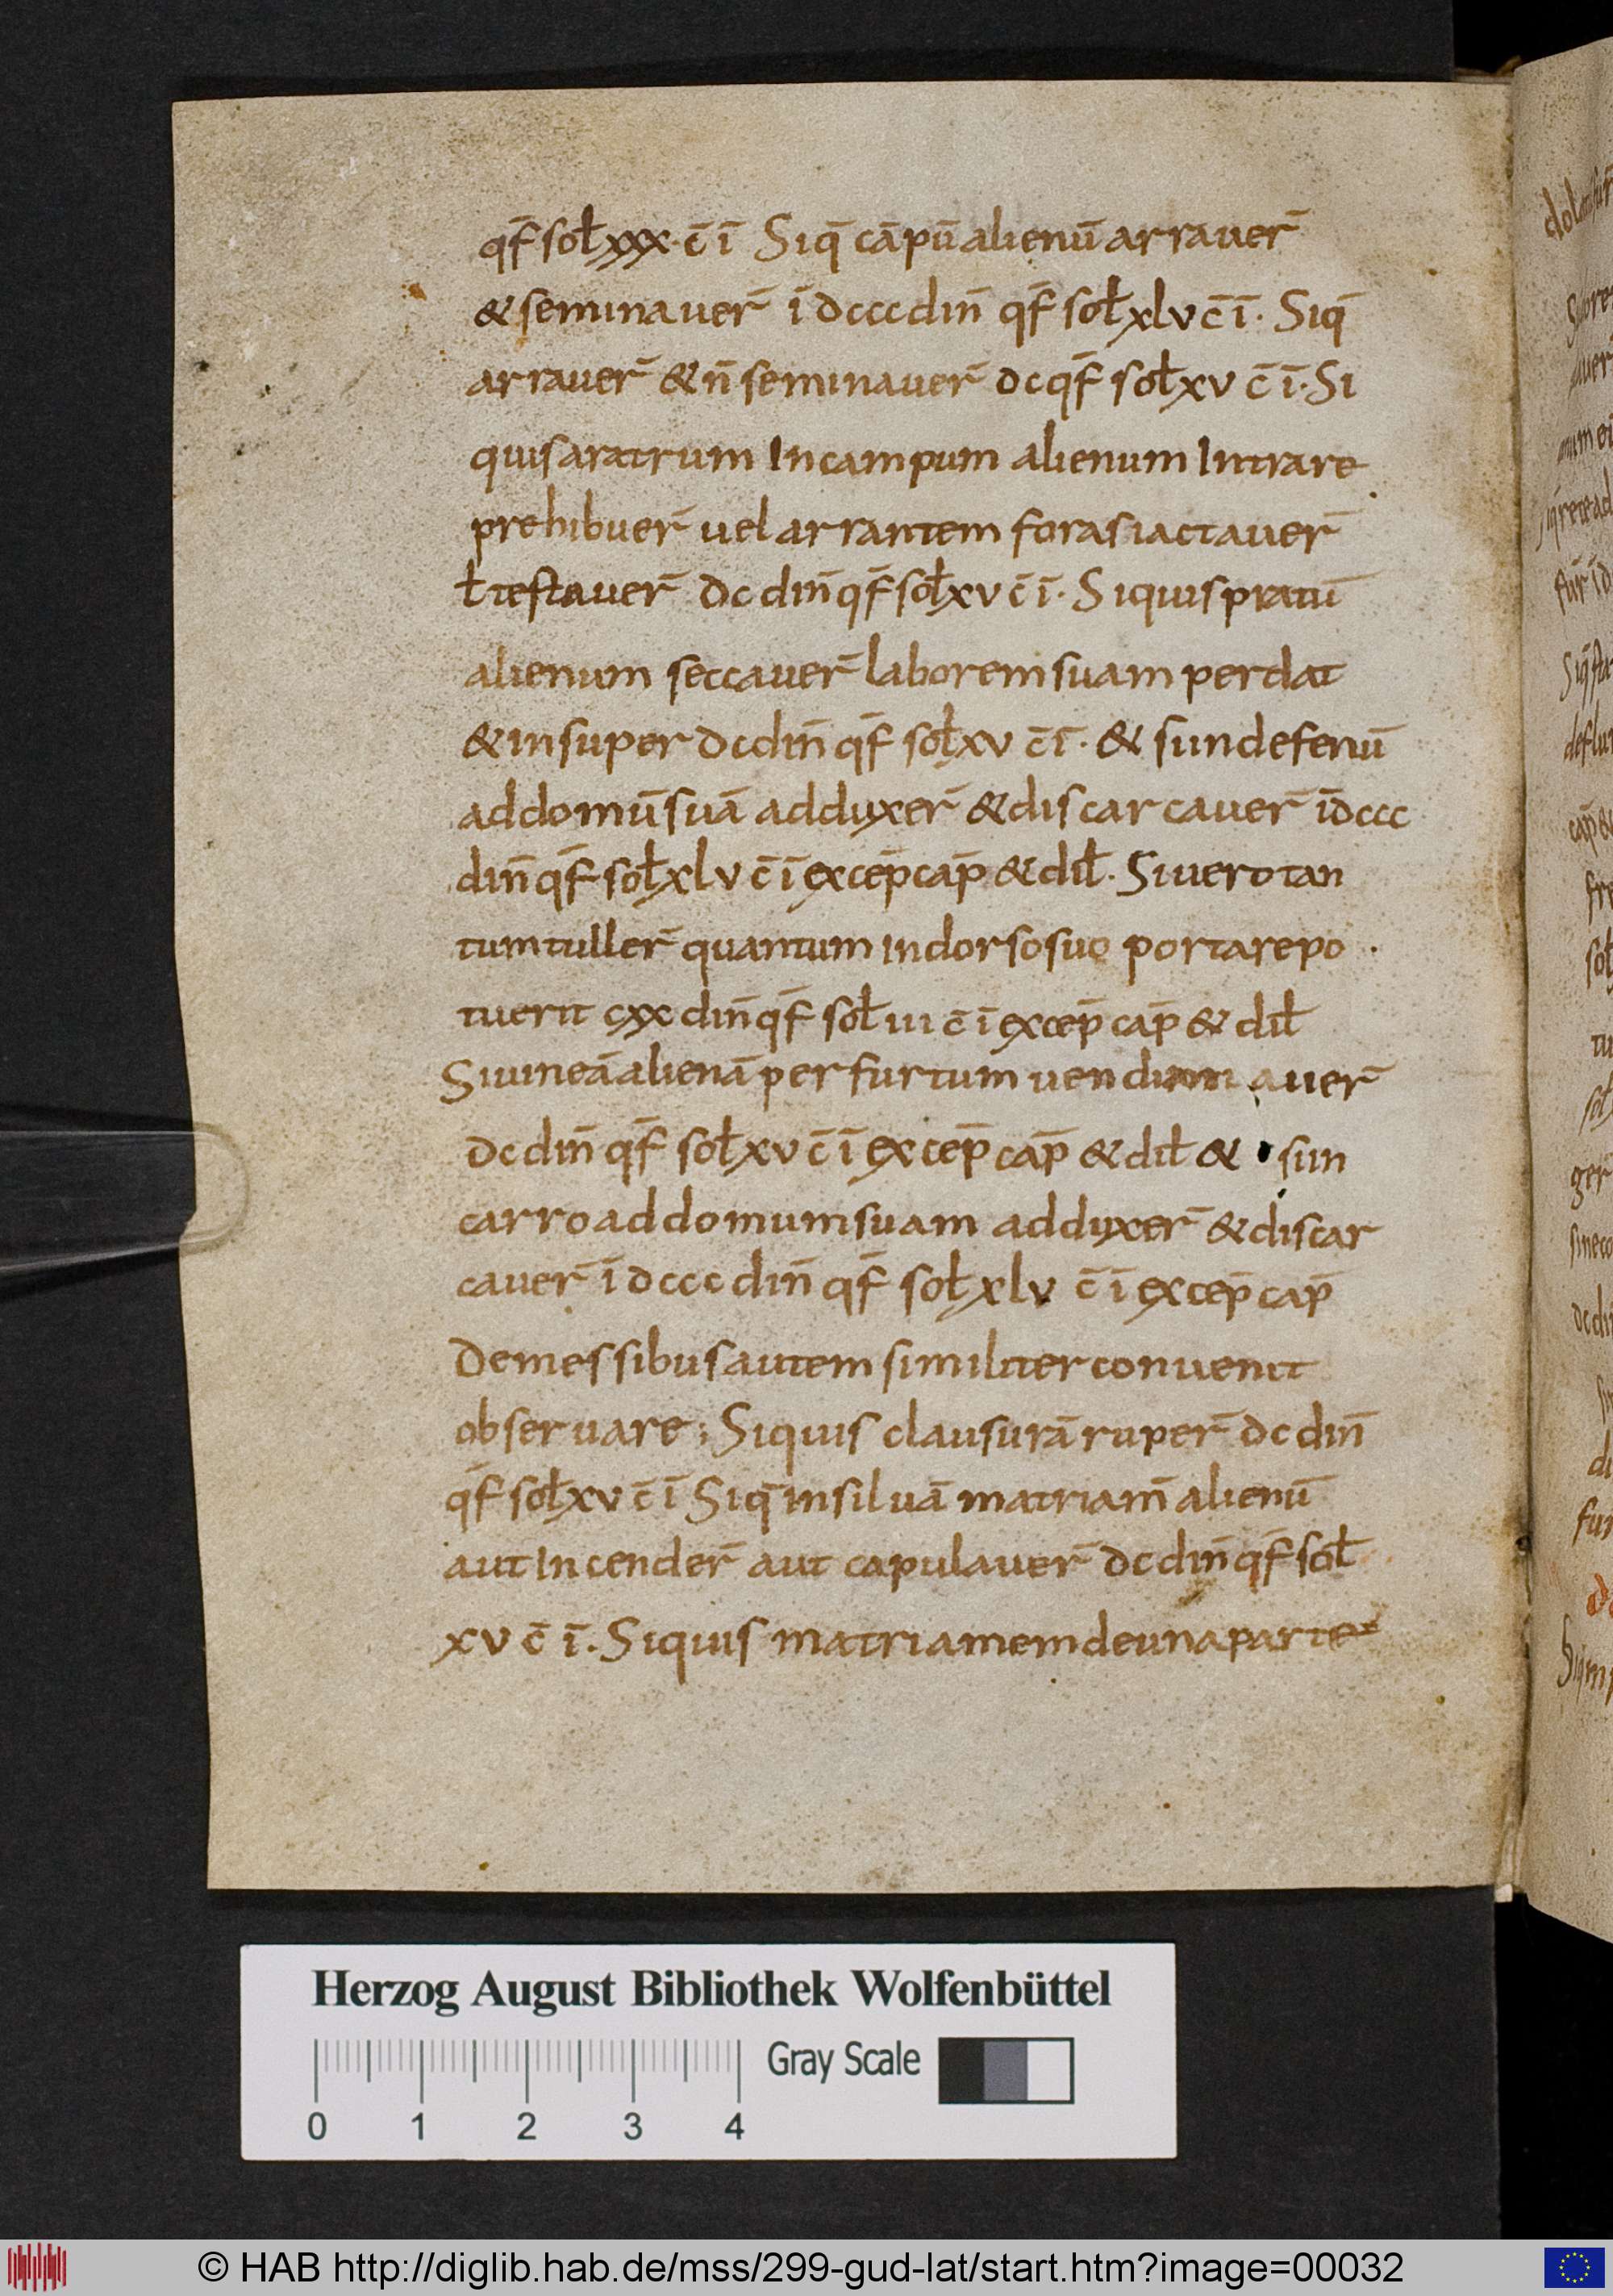 qf̄ soł xxx· c̄ ī Siq̄ cāpū alienū arrauer̄
& seminauer̄ ī dccc din̄ qf̄ soł xlv c̄ ī· Siq̄
arrauer̄ & n̄ seminauer̄ dc qf̄ soł xv c̄ ī· Si
quis aratrum In campum alienum Intrare
prehibuer̄ uel arrantem foras iactauer̄
ł testauer̄ dc din̄ qf̄ soł xv c̄ ī· Si quis pratū
alienum seccauer̄ laborem suam perdat
& in super dc din̄ qf̄ soł xv c̄ ī· & si inde fenū
ad domū suā adduxer̄ & discarcauer̄ ī dccc
din̄ qf̄ soł xlv c̄ ī excep̄ cap̄ & dił. Si uero tan
tum tuller̄ quantum in dorso suo portare po
tuerit cxx din̄ qf̄ soł iii c̄ ī excep̄ cap̄ & dił
Si uineā alienā per furtum uendimauer̄
dc din̄ qf̄ soł xv c̄ ī excep̄ cap̄ & dił & si in
carro ad domum suam adduxer̄ & discar
cauer̄ ī dccc din̄ qf̄ soł xlv c̄ ī excep̄ cap̄
De messibus autem similiter conuenit
obseruare; Si quis clausurā ruper̄ dc din̄
qf̄ soł xv c̄ ī Siq̄ in siluā matriam̄ alienū
aut Incender̄ aut capulauer̄ dc din̄ qf̄ soł
xv c̄ ī. Si quis matriamem de una parte
Herzog August Bibliothek Wolfenbüttel
Gray Scale
0 1 2 3 4
© HAB http://diglib.hab.de/mss/299-gud-lat/start.htm?image=00032